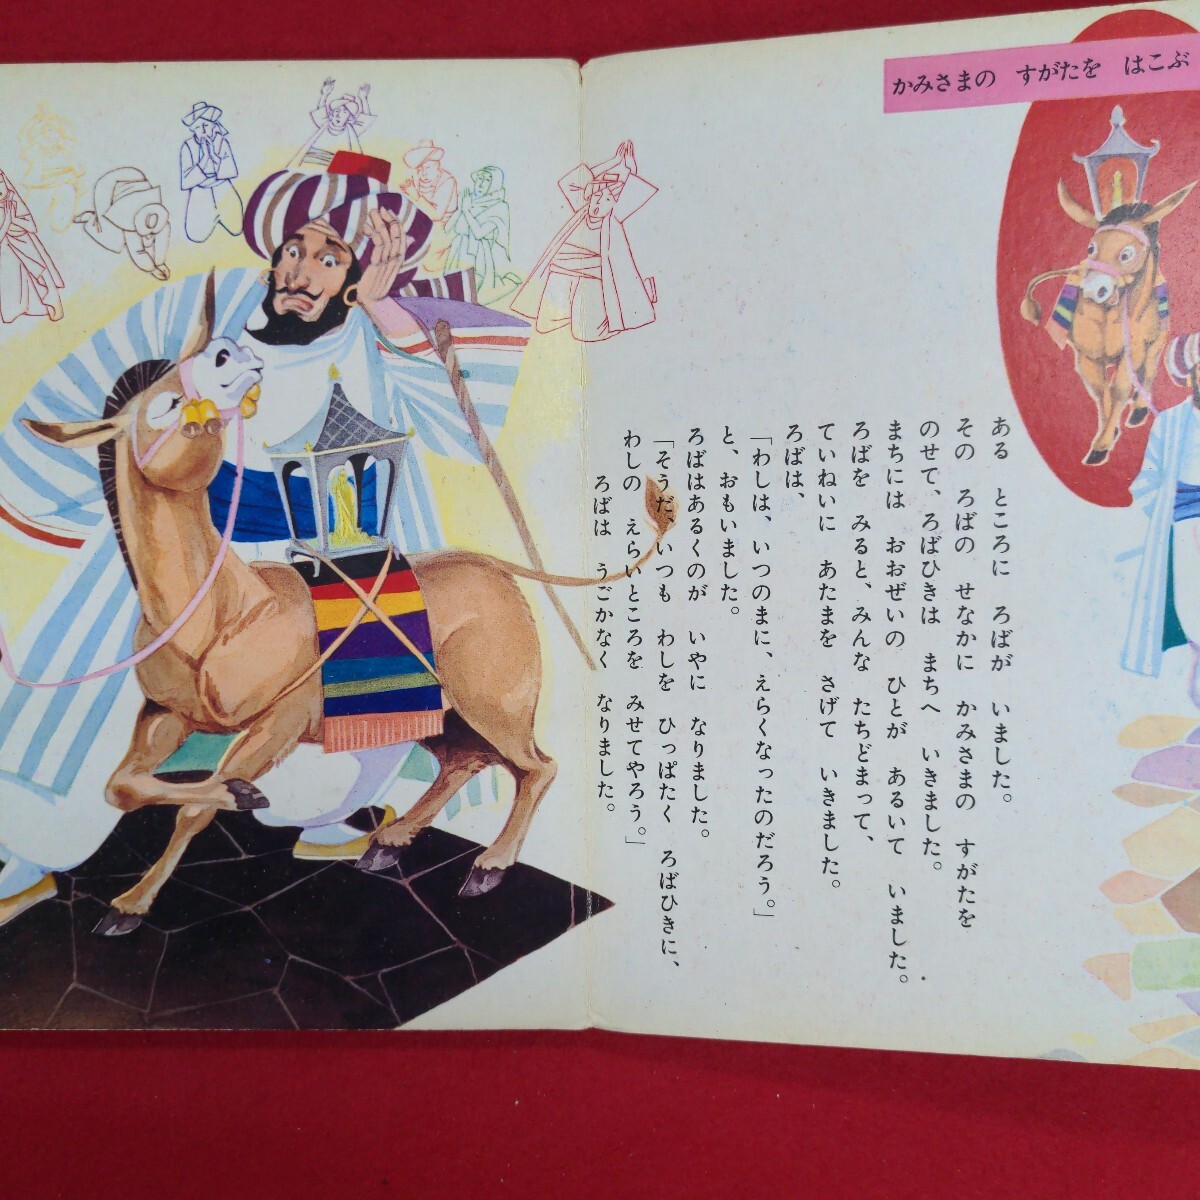 かみさまの　すがたを　はこぶ
ある　ところに　ろばが　いました。
その　ろばの　せなかに　かみさまの　すがたを
のせて、ろばひきは　まちへ　いきました。
まちには　おおぜいの　ひとが　あるいて　いました。
ろばを　みると、みんな　たちどまって、
ていねいに　あたまを　さげて　いきました。
ろばは、
「わしは、いつのまに、えらくなったのだろう。」
と、おもいました。
ろばはあるくのが　いやに　なりました。
「そうだ、いつも　わしを　ひっぱたく　ろばひきに、
わしの　えらいところを　みせてやろう。」
ろばは　うごかなく　なりました。